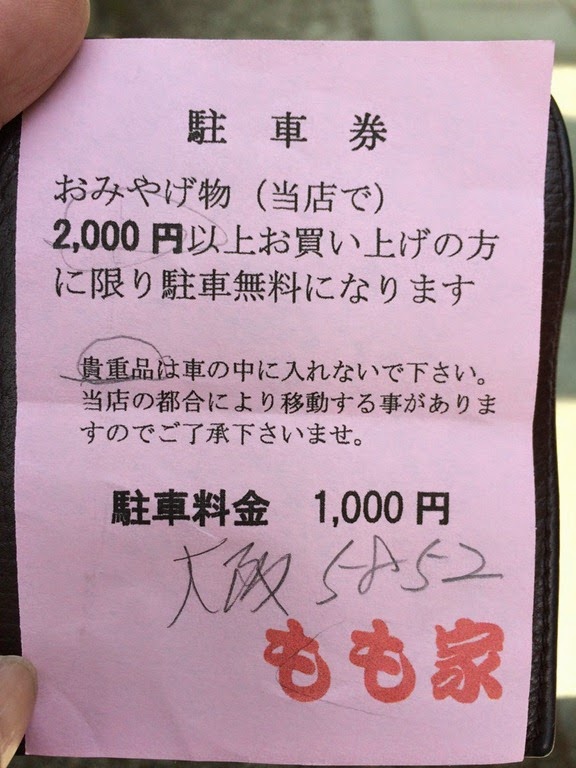 駐車券
おみやげ物（当店で）
2,000円以上お買い上げの方
に限り駐車無料になります
貴重品は車の中に入れないで下さい。
当店の都合により移動する事がありま
すのでご了承下さいませ。
駐車料金 1,000円
大阪 5852
もも家